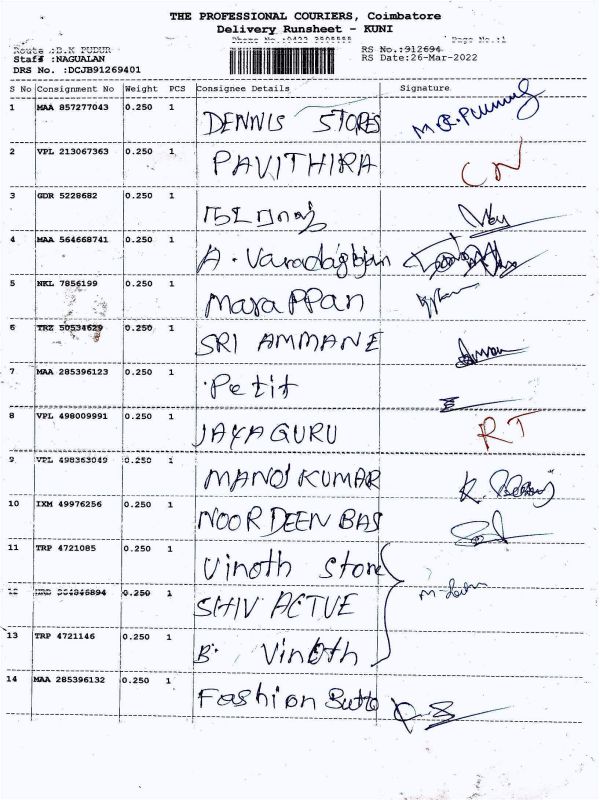 THE PROFESSIONAL COURIERS, Coimbatore
Delivery Runsheet - KUNI
Phone No.:0422 Page No.:1
Route :B.K PUDUR RS No.:912694
Staff :NAGUALAN RS Date:26-Mar-2022
DRS No. :DCJB91269401
S No Consignment No Weight PCS Consignee Details Signature
1 MAA 857277043 0.250 1 DENNIS STORES
2 VPL 213067363 0.250 1 PAVITHIRA CN
3 GDR 5228682 0.250 1
4 MAA 564668741 0.250 1 A. Varadagbjan
5 NKL 7856199 0.250 1 MaraPPan
6 TRZ 50534629 0.250 1 SRI AMMANE
7 MAA 285396123 0.250 1 Petit
8 VPL 498009991 0.250 1 JAYAGURU RT
9 VPL 498363049 0.250 1 MANOJ KUMAR
10 IXM 49976256 0.250 1 NOORDEEN BAS
11 TRP 4721085 0.250 1 Vinoth Store
12 0.250 1 SHIV ACTUE
13 TRP 4721146 0.250 1 B. Vinoth
14 MAA 285396132 0.250 1 Fashion Butto